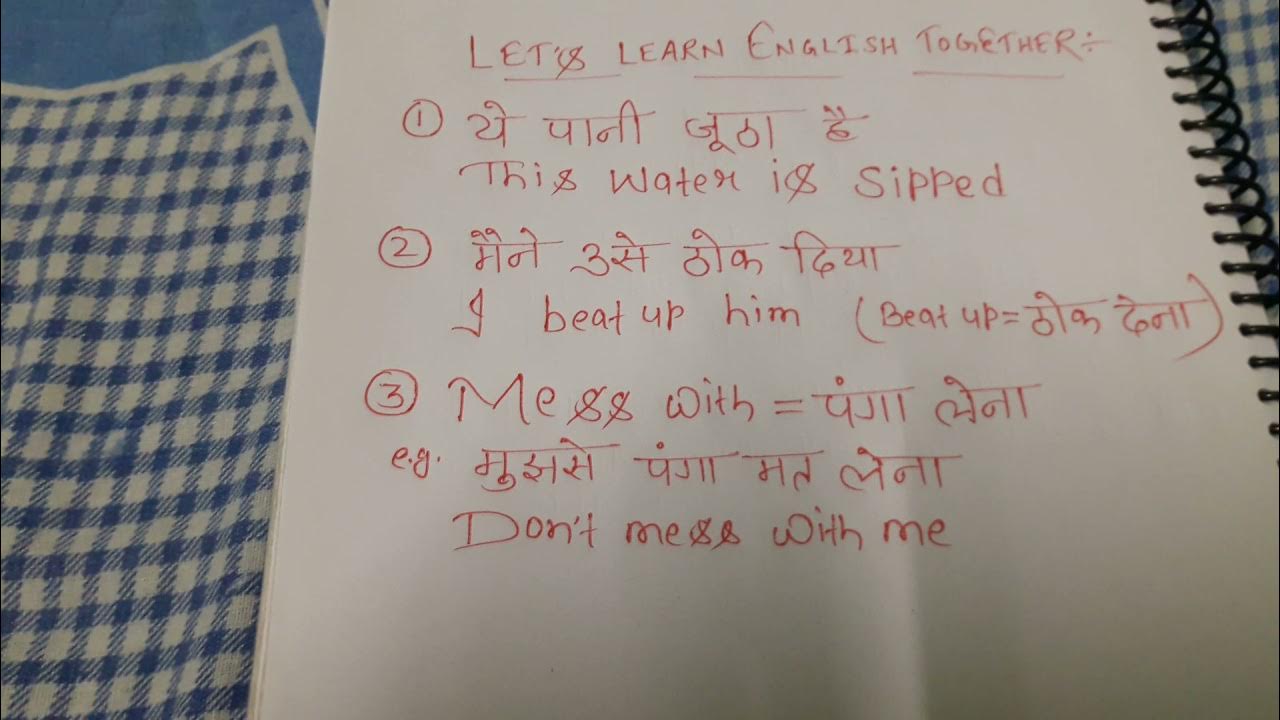 LET'S LEARN ENGLISH TOGETHER:-
① ये पानी जूठा है
This water is sipped
② मैैने उसे ठोक दिया
I beat up him (Beat up = ठोक देना)
③ Mess with = पंगा लेना
e.g. मुझसे पंगा मत लेना
Don't mess with me